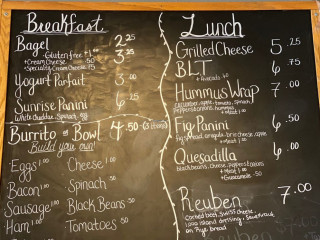 Breakfast
Bagel 2.25
Gluten free +1.00 3.25
+Cream Cheese .50
+Specialty Cream Cheese .75
Yogurt Parfait 3.00
Sunrise Panini 6.25
White cheddar, Spinach, egg
Burrito or Bowl 4.50
Build your own!
Eggs 1.00
Cheese 1.00
Bacon 1.00
Spinach .50
Sausage 1.00
Black Beans .50
Ham 1.00
Tomatoes .50
Lunch
Grilled Cheese 5.25
BLT 6.75
+ Avocado
Hummus Wrap 7.00
cucumber, apple, tomato, spinach,
pepperstons, hummus
Fig Panini 6.50
Fig spread, arugula, brie cheese, apple
Quesadilla 6.00
black beans, cheese, peppers, onions
+ Guacamole .50
Reuben 7.00
Corned beef, Swiss cheese,
1000 island dressing, Sauerkraut
on Rye bread